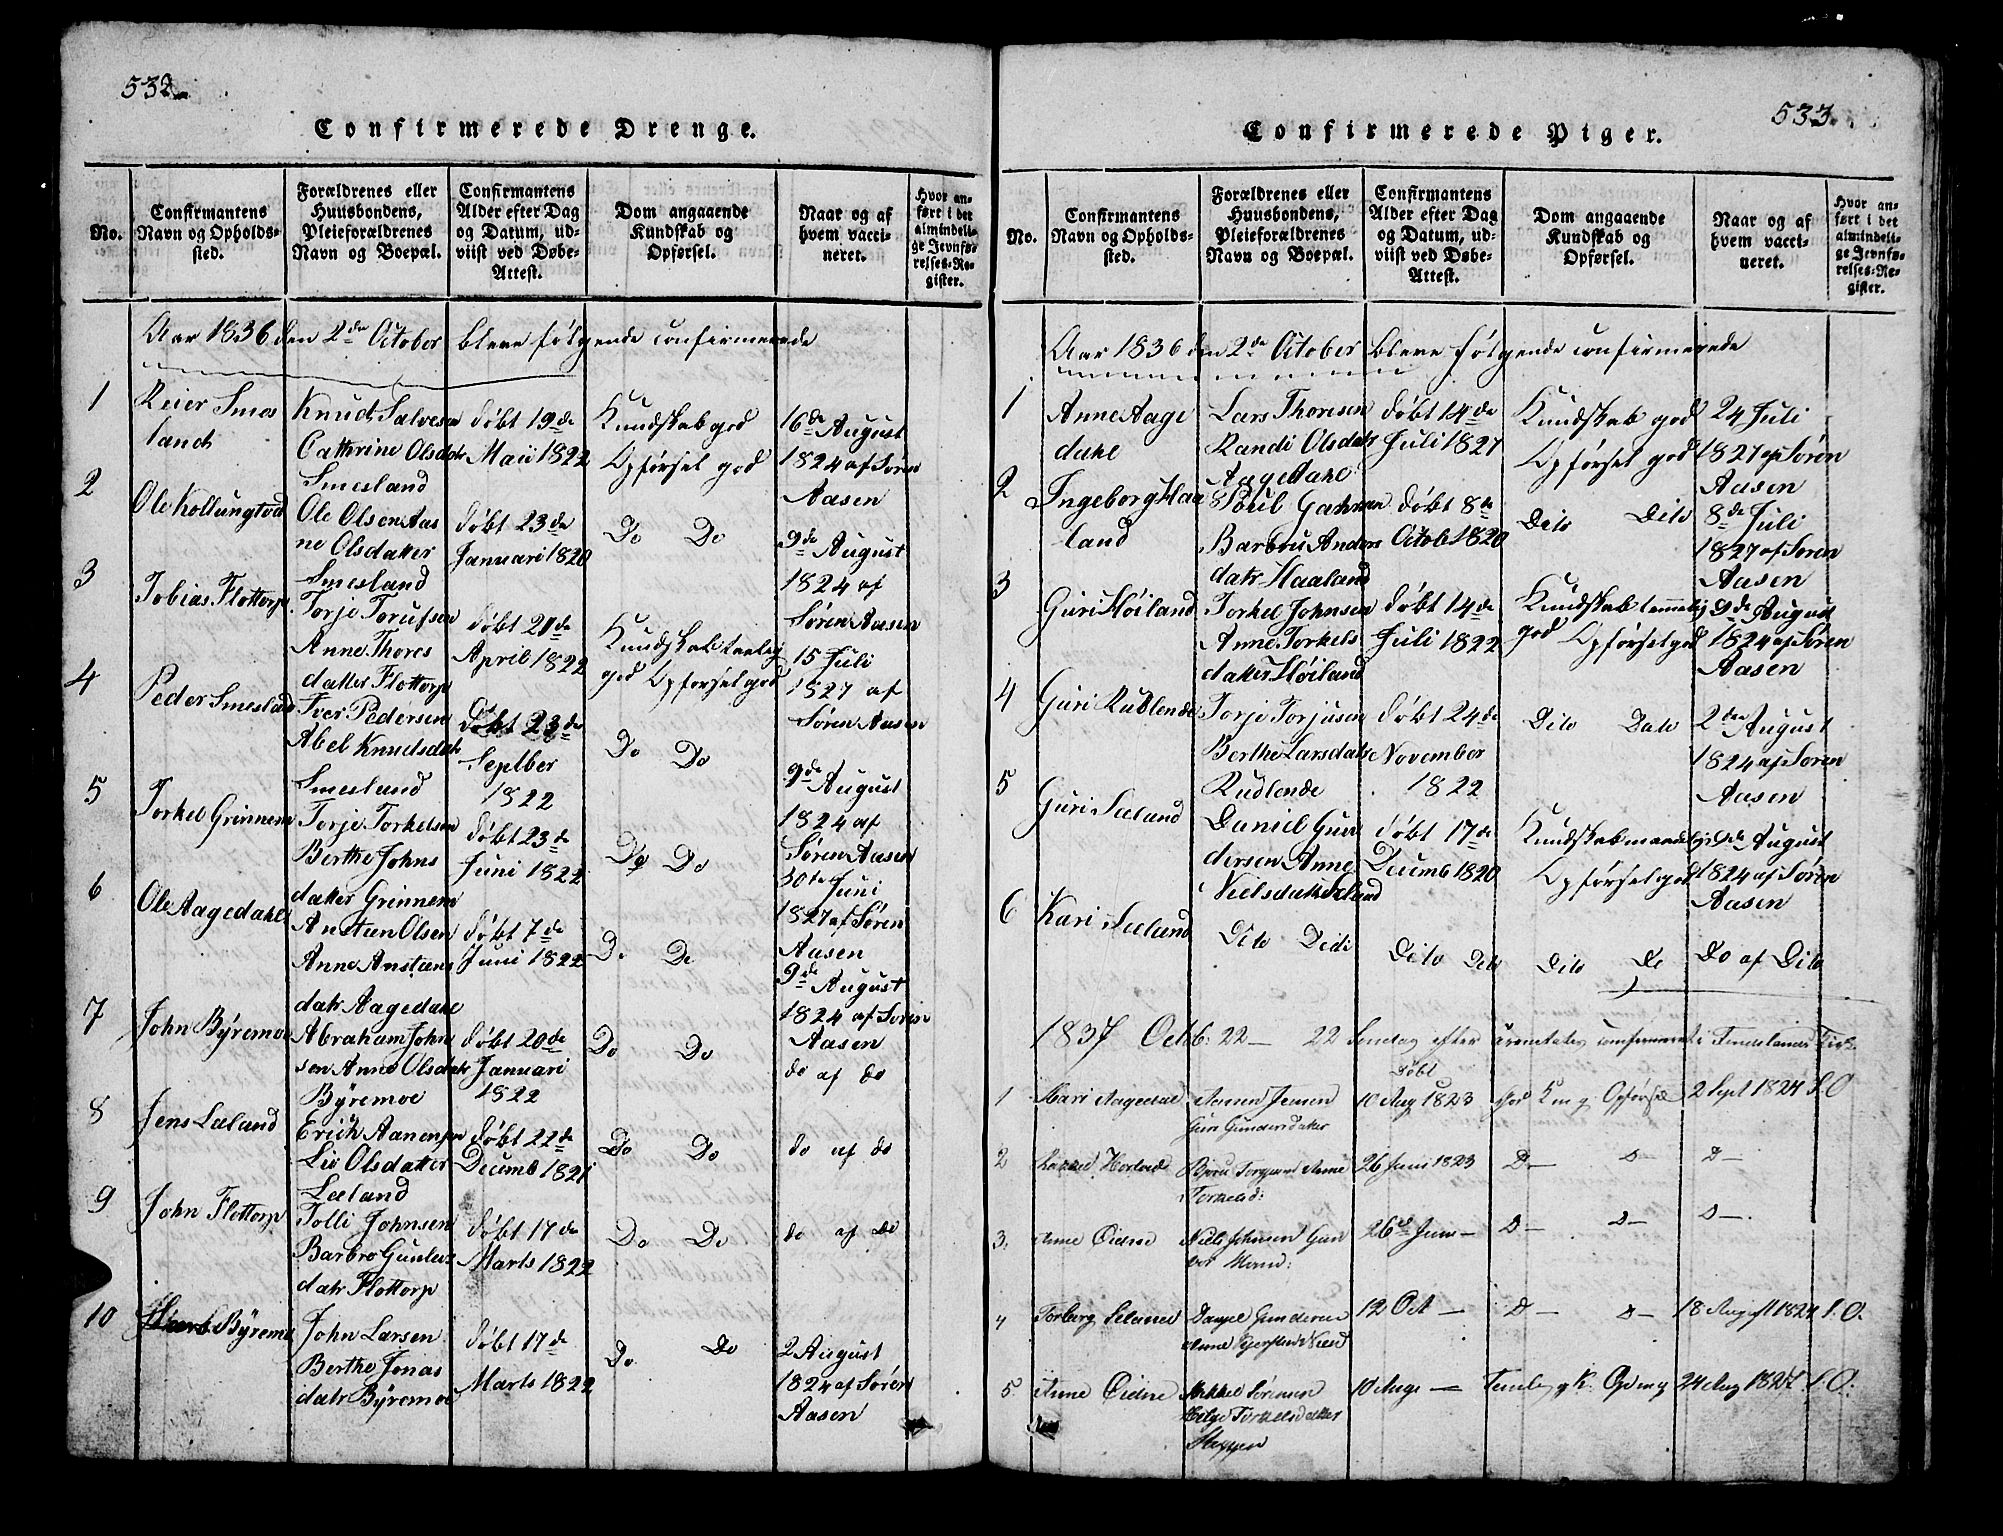 532
Confirmerede Drenge.
No.
Confirmantens
Navn og Opholds-
sted.
Forældrenes eller
Huusbondens,
Pleieforældrenes
Navn og Boepæl.
Confirmantens
Alder efter Dag
og Datum, ud-
viist ved Døbe-
Attest.
Dom angaaende
Kundskab og
Opførsel.
Naar og af
hvem vacci-
neret.
Hvor an-
ført i det
almindeli-
ge Jevnfø-
relses-Re-
gister.
Aar 1836 den 2de October bleve følgende confirmerede
1
Reier Smes
land
Knud Salvesen
Cathrine Olsdatr
Smesland
døbt 19de
Maii 1822
Kundskab god
Opførsel god
16de August
1824 af Søren
Aasen
2
Ole Kollungtvd
Ole Olsen Aas
ne Olsdatter
Smesland
døbt 23de
Januari 1820
Do Do
9de August
1824 af
Søren Aasen
3
Tobias Flottorp
Torje Torufsen
Anne Thores
datter Flottorp
døbt 21de
April 1822
Kundskab
god Opførsel god
15 Juli
1827 af
Søren Aasen
4
Peder Smesland
Iver Pedersen
Abel Knudsdatr
Smesland
døbt 23de
Septber
1822
Do Do
9de August
1824 af
Søren Aasen
5
Torkel Grinnem
Torje Torkelsen
Berthe Johns
datter Grinnem
døbt 23de
Juni 1822
Do Do
30te Juni
1827 af Søren
Aasen
6
Ole Aagedahl
Ansten Olsen
Anne Anstens
datr Aagedahl
døbt 7de
Juni 1822
Do Do
9de August
1824 af Søren
Aasen
7
John Byremoe
Abraham John
sen Anne Olsdatr
Byremoe
døbt 20de
Januari
1822
Do Do
do af do
8
Jens Leland
Erich Aanensen
Liv Olsdatter
Leland
døbt 22de
Decemb 1821
Do Do
do af do
9
John Flottorp
Tolli Johnsen
Barbro Gunles
datr Flottorp
døbt 17de
Marts 1822
Do Do
do af do
10
Byremoe
John Larsen
Berthe Jonas
datr Byremoe
døbt 17de
Marts 1822
Do Do
2 August
1824 af Søren
Aasen
533
Confirmerede Piger.
No.
Confirmantens
Navn og Opholds-
sted.
Forældrenes eller
Huusbondens,
Pleieforældrenes
Navn og Boepæl.
Confirmantens
Alder efter Dag
og Datum, ud-
viist ved Døbe-
Attest.
Dom angaaende
Kundskab og
Opførsel.
Naar og af
hvem vacci-
neret.
Hvor an-
ført i det
almindeli-
ge Jevnfø-
relses-Re-
gister.
Aar 1836 den 2de October bleve følgende confirmerede
1
Anne Aage
dahl
Lars Thoresen
Randi Olsdatr
Aagedahl
døbt 14de
Juli 1827
Kundskab god
Opførsel god
24 Juli
1827 af Søren
Aasen
2
Ingeborg Haa
land
Poul
Barbru Anders
datr Haaland
døbt 8de
Octob 1820
Dito Dito
8de Juli
1827 af Søren
Aasen
3
Guri Høiland
Torkel Johnsen
Anne Torkels
datter Høiland
døbt 14de
Juli 1822
Kundskab temmelig
god Opførsel god
9de August
1824 af Søren
Aasen
4
Guri Rudlende
Torje Torjusen
Berthe Larsdatr
Rudlende
døbt 24de
November
1822
Dito Dato
2den August
1824 af Søren
Aasen
5
Guri Leland
Daniel Gun
dersen Anne
Nielsdatr Leland
døbt 17de
Decemb 1820
Kundskab maadelig
Opførsel god
9de August
1824 af Søren
Aasen
6
Kari Leland
Dito Dido
Dito Dito
Dito Do
Do af Dito
1837 Octb: 22 — 22 Søndag efter confirmeret i Kirke
1
Mari Aagedal
Jensen
Guri Gundersdatter
Døbt
10 Aug 1823
God K. m g Opførsel
2 Sept 1824 S.O
2
Anne
26 Juni 1823
D— D— D—
3.
Anne Øidne
Niels Johnsen Gun
vor
26de Juni —
D— D— D—
4
Torborg Leland
Daniel Gundersen
Anne
12 Oct —
D— D—
18 August 1824 S.O.
5.
Anne Øidne
Mikkel Sørensen
Helge Torkelsdatter
10 Aug —
Temlig g K: Opm g
24 Aug 1827 S.O: